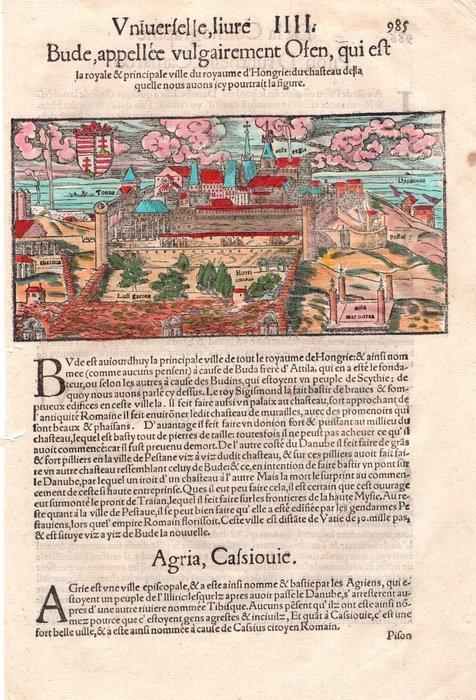 Vniuerselle, liure IIII. 985
Bude, appellée vulgairement Ofen, qui est
la royale & principale ville du royaume d'Hongrie: du chasteau de la
quelle nous auons icy pourtrait la figure.
aula regia
Danubius
Thonau
pastel
thermæ
Horti
Lust garten
aula
marmorea
BVde est auiourdhuy la principale ville de tout le royaume de Hongrie: & ainsi nom
mee (comme aucuns pensent) à cause de Buda frere d'Attila, qui en a esté le fonda-
teur, ou selon les autres à cause des Budins, qui estoyent vn peuple de Scythie: de
quoy nous auons parlé cy dessus. Le roy Sigismond la fait bastir de braues & som-
ptueux edifices en ceste ville là. Il feit faire aussi vn palaix au chasteau, fort approchant de
l'antiquité Romaine il feit enuirōner ledit chasteau de murailles, auec des promenoirs qui
sont beaux & plaisans. D'auantage il feit faire vn donion fort & puissant au milieu du
chasteau, lequel est basty tout de pierres de taille: toutesfois il ne peust pas acheuer ce qu'il
auoit commencé: car il fust preuenu de mort. De l'autre costé du Danube il feit faire de grās
& fort pilliers en la ville de Pestane viz à viz dudit chasteau, & sur ces pilliers auoit fait fai-
re vn autre chasteau ressemblant celuy de Bude: & ce, en intention de faire bastir vn pont sur
le Danube, par lequel vn iroit d'vn chasteau à l'autre Mais la mort le surprint au commen-
cement de ceste si haute entreprise. Ques il eut peu faire cela, il est certain que cest ouurage
eut surmonté le pront de Traian, lequel il feit faire sur les frontieres de la haute Mysie. Au re-
ste quant à la ville de Pestaue, il se peut bien faire qu'elle a esté edifiee par les gendarmes Pe-
stauiens, lors quel' empire Romain florissoit. Ceste ville est distāte de Vatie de 10. mille pas,
& est situye viz a yiz de Bude la nouuelle.
Agria, Cassiouie.
AGrie est vne ville episcopale, & a este ainsi nomme & bastie par les Agriens, qui e-
stoyent vn peuple de l'Illiric: lesquelz apres auoir passé le Danube, s'arresterent au-
pres d'vne autre riuiere nommée Tibisque. Aucuns pēsent qu'ilz ont este ainsi nō-
mez pource que c'estoyent gens agrestes & inciuilz, Et quāt à Cassiouie, c'est vne
fort belle ville, & a esté ainsi nommée à cause de Cassius citoyen Romain.
Pison